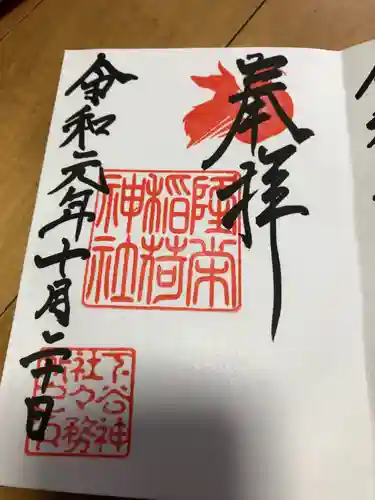 奉拝
隆栄
稲荷
神社
令和元年十月二十日
下谷神
社々務
所之印